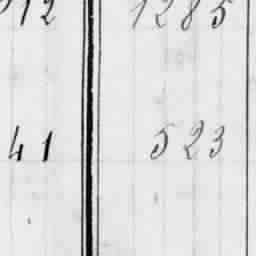 912 1285
41 523